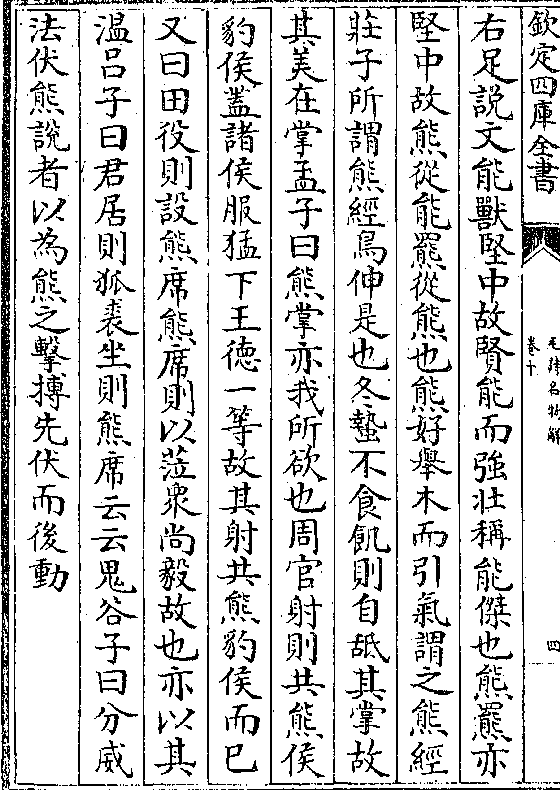 欽定四庫全書
毛詩名物解
卷十
四
右足說文能獸堅中故賢能而強壯稱能傑也熊羆亦
堅中故熊從能羆從熊也熊好舉木而引氣謂之熊經
莊子所謂熊經鳥伸是也冬蟄不食飢則自舐其掌故
其美在掌孟子曰熊掌亦我所欲也周官射則共熊侯
豹侯蓋諸侯服猛下王德一等故其射共熊豹侯而已
又曰田役則設熊席熊席則以莅衆尚毅故也亦以其
温吕子曰君居則狐裘坐則熊席云云鬼谷子曰分威
法伏熊說者以為熊之擊搏先伏而後動